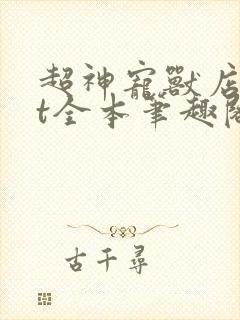 超神寵獸店
t全本筆趣閣
古千尋